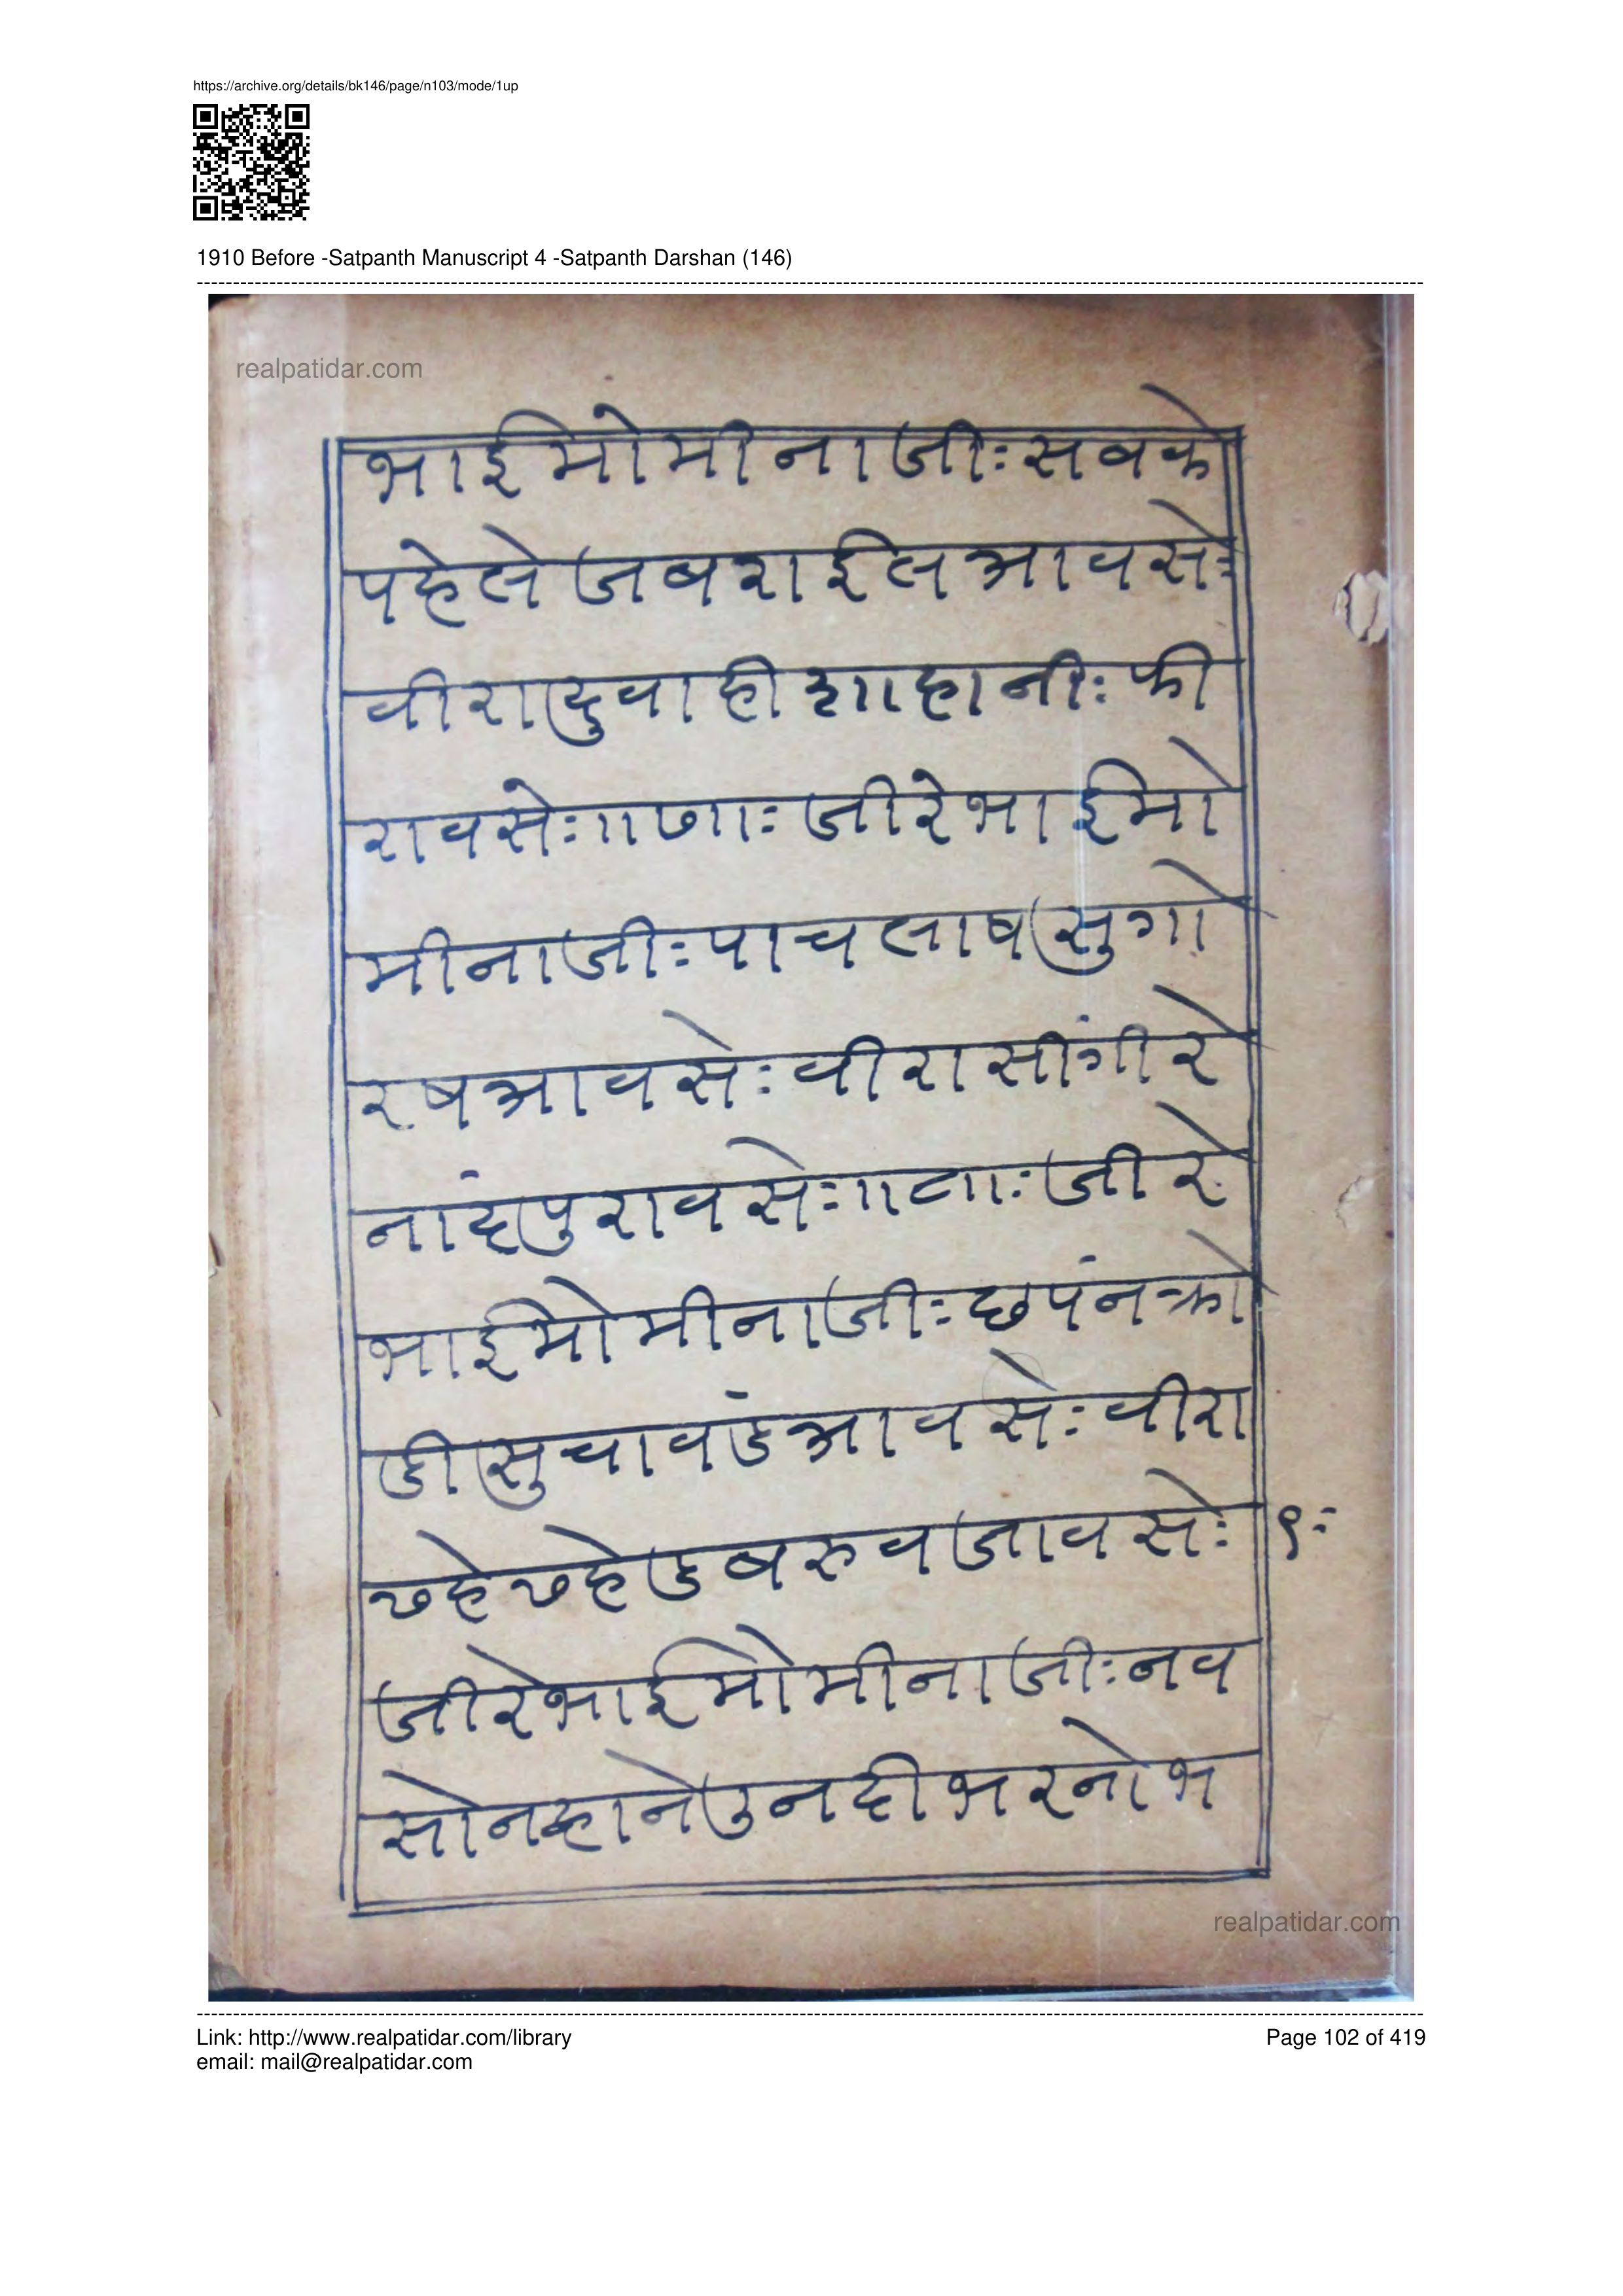 https://archive.org/details/bk146/page/n103/mode/1up
1910 Before -Satpanth Manuscript 4 -Satpanth Darshan (146)
realpatidar.com
भाईमोमीनाजीः सवको
पहेले जबराईल आवसेः
वीरा दुवाही शाहानीः फी
रावसेः ॥७॥ः जीरेभाईमो
मीनाजीः पाच लाष सुगो
रष आवसेः वीरा सींगी रे
नांद पुरावसेः ॥८॥ः जीरे
भाईमोमीनाजीः छपंन क्रो
डी सु चावंड आवसेः वीरा
डबरु वजावसेः ९ः
जीरेभाईमोमीनाजीः नव
सो नदी भरनो भ
realpatidar.com
Link: http://www.realpatidar.com/library
Page 102 of 419
email: mail@realpatidar.com